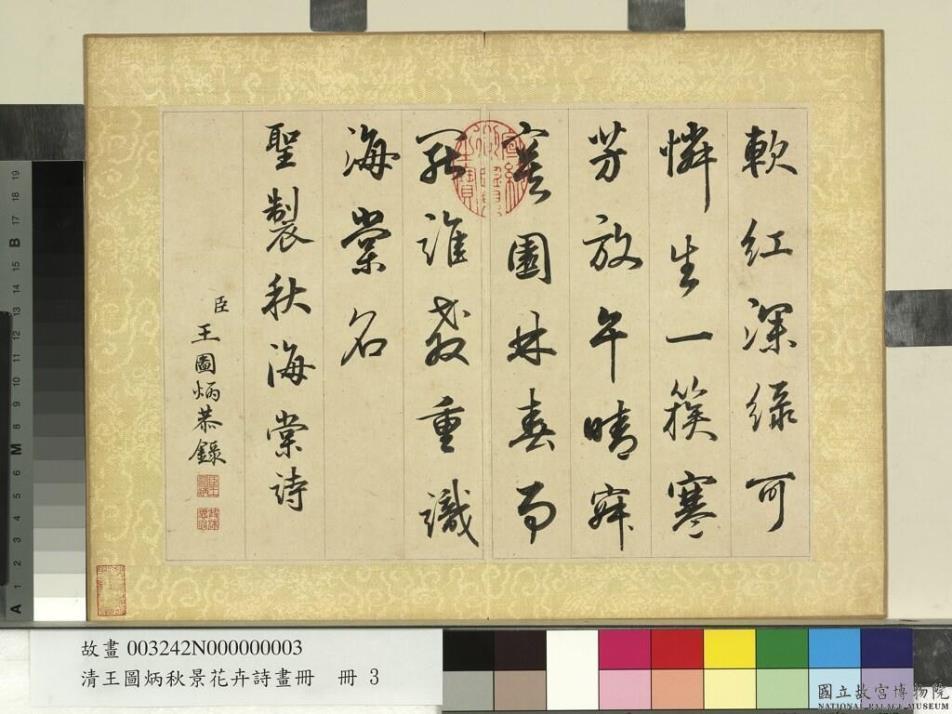 軟紅深綠可
憐生一簇寒
芳放午晴寂
寞園林春雨
罷誰教重識
海棠名
聖製秋海棠詩
臣王圖炳恭錄
故畫 003242N000000003
清王圖炳秋景花卉詩畫冊 冊 3
國立故宮博物院
NATIONAL PALACE MUSEUM